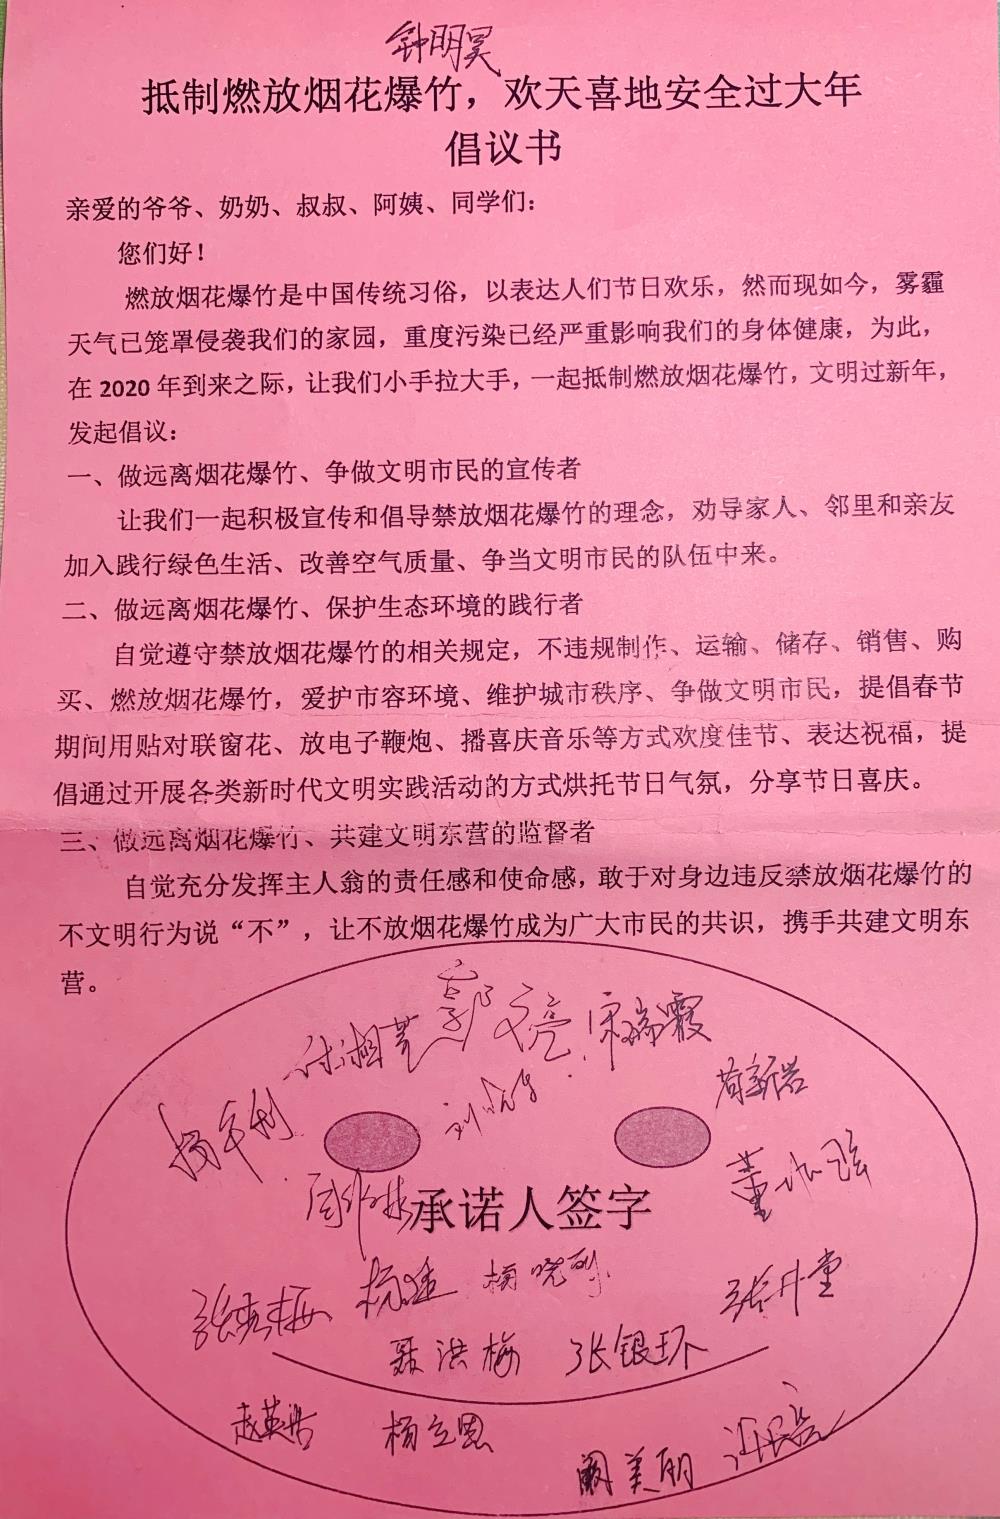 钟明昊
抵制燃放烟花爆竹，欢天喜地安全过大年
倡议书
亲爱的爷爷、奶奶、叔叔、阿姨、同学们：
您们好！
燃放烟花爆竹是中国传统习俗，以表达人们节日欢乐，然而现如今，雾霾
天气已笼罩侵袭我们的家园，重度污染已经严重影响我们的身体健康，为此，
在 2020 年到来之际，让我们小手拉大手，一起抵制燃放烟花爆竹，文明过新年，
发起倡议：
一、做远离烟花爆竹、争做文明市民的宣传者
让我们一起积极宣传和倡导禁放烟花爆竹的理念，劝导家人、邻里和亲友
加入践行绿色生活、改善空气质量、争当文明市民的队伍中来。
二、做远离烟花爆竹、保护生态环境的践行者
自觉遵守禁放烟花爆竹的相关规定，不违规制作、运输、储存、销售、购
买、燃放烟花爆竹，爱护市容环境、维护城市秩序、争做文明市民，提倡春节
期间用贴对联窗花、放电子鞭炮、播喜庆音乐等方式欢度佳节、表达祝福，提
倡通过开展各类新时代文明实践活动的方式烘托节日气氛，分享节日喜庆。
三、做远离烟花爆竹、共建文明东营的监督者
自觉充分发挥主人翁的责任感和使命感，敢于对身边违反禁放烟花爆竹的
不文明行为说“不”，让不放烟花爆竹成为广大市民的共识，携手共建文明东
营。
郭文亮
宋瑞霞
苟新岩
承诺人签字
杨晓利
张升堂
聂洪梅
张银环
赵英浩
杨立恩
阚美丽